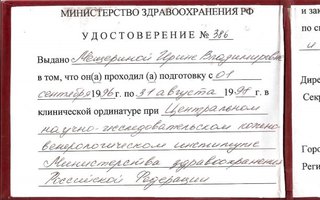 МИНИСТЕРСТВО ЗДРАВООХРАНЕНИЯ РФ
УДОСТОВЕРЕНИЕ № 386
Выдано Мещериной Ирине Владимировне
в том, что он(а) проходил (а) подготовку с 01
сентября 1996 г. по 31 августа 1998 г. в
клинической ординатуре при Центральном
научно-исследовательском кожно-
венерологическом институте
Министерства здравоохранения
Российской Федерации
и зак
по сп
и
Дире
Секр
Горо
Реги